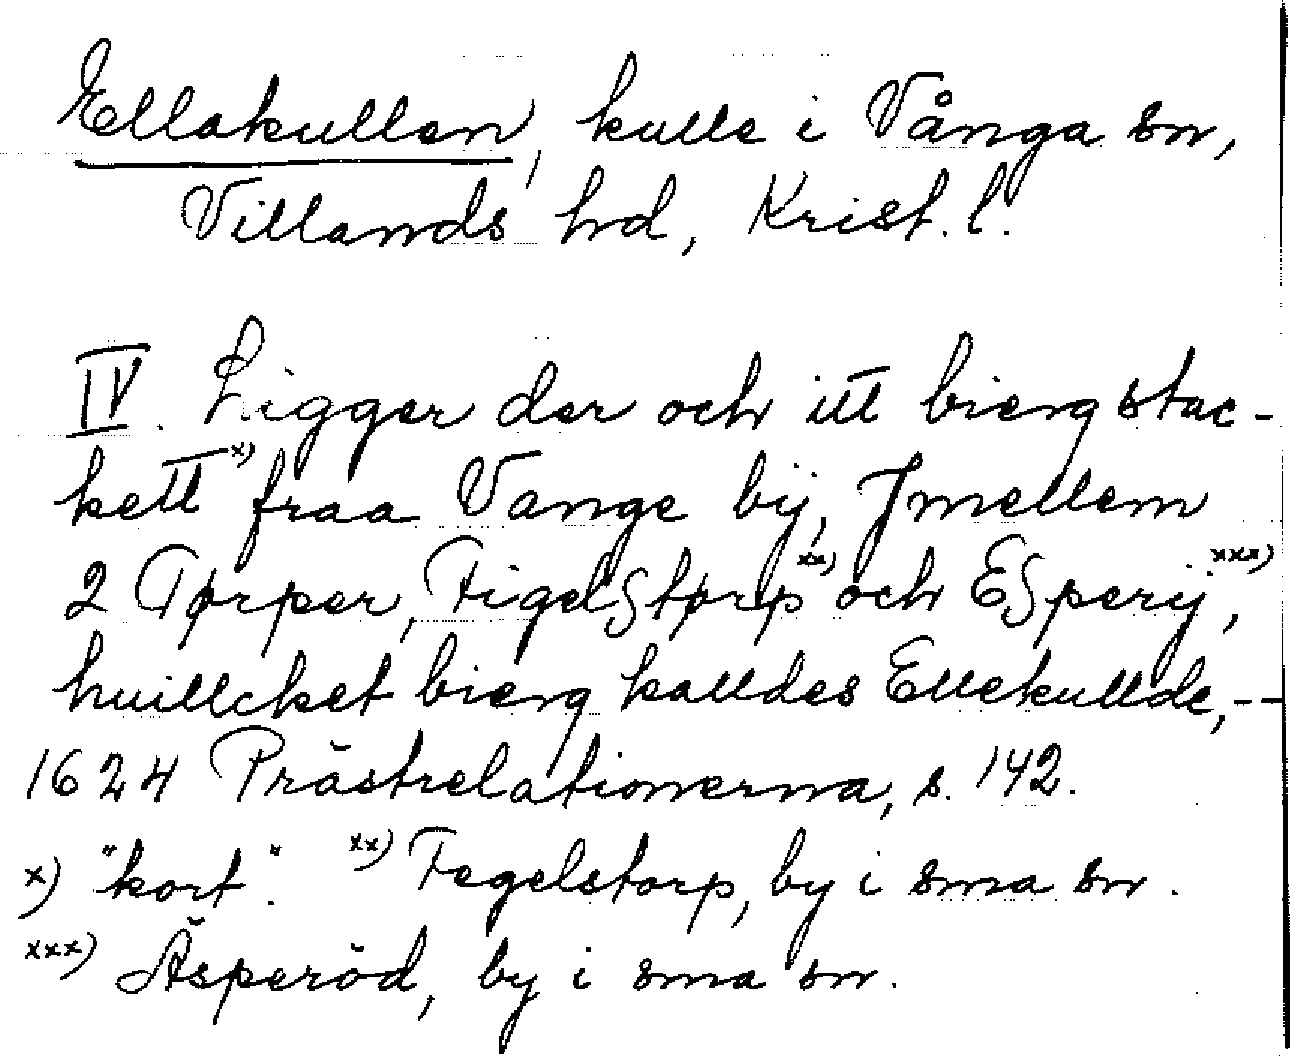 Ellakullen, kulle i Vånga sn,
Villands hd, Krist. l.
IV. Ligger der och itt bierg stac-
kett x) fraa Vange bÿ, Jmellem
2 Tørper, Figelstørp xx) och Esperÿ xxx),
huillcket bierg kalldes Ellekullde, --
1624 Prästrelationerna, s. 142.
x) "kort". xx) Fegelstorp, by i sma sn.
xxx) Äsperöd, by i sma sn.